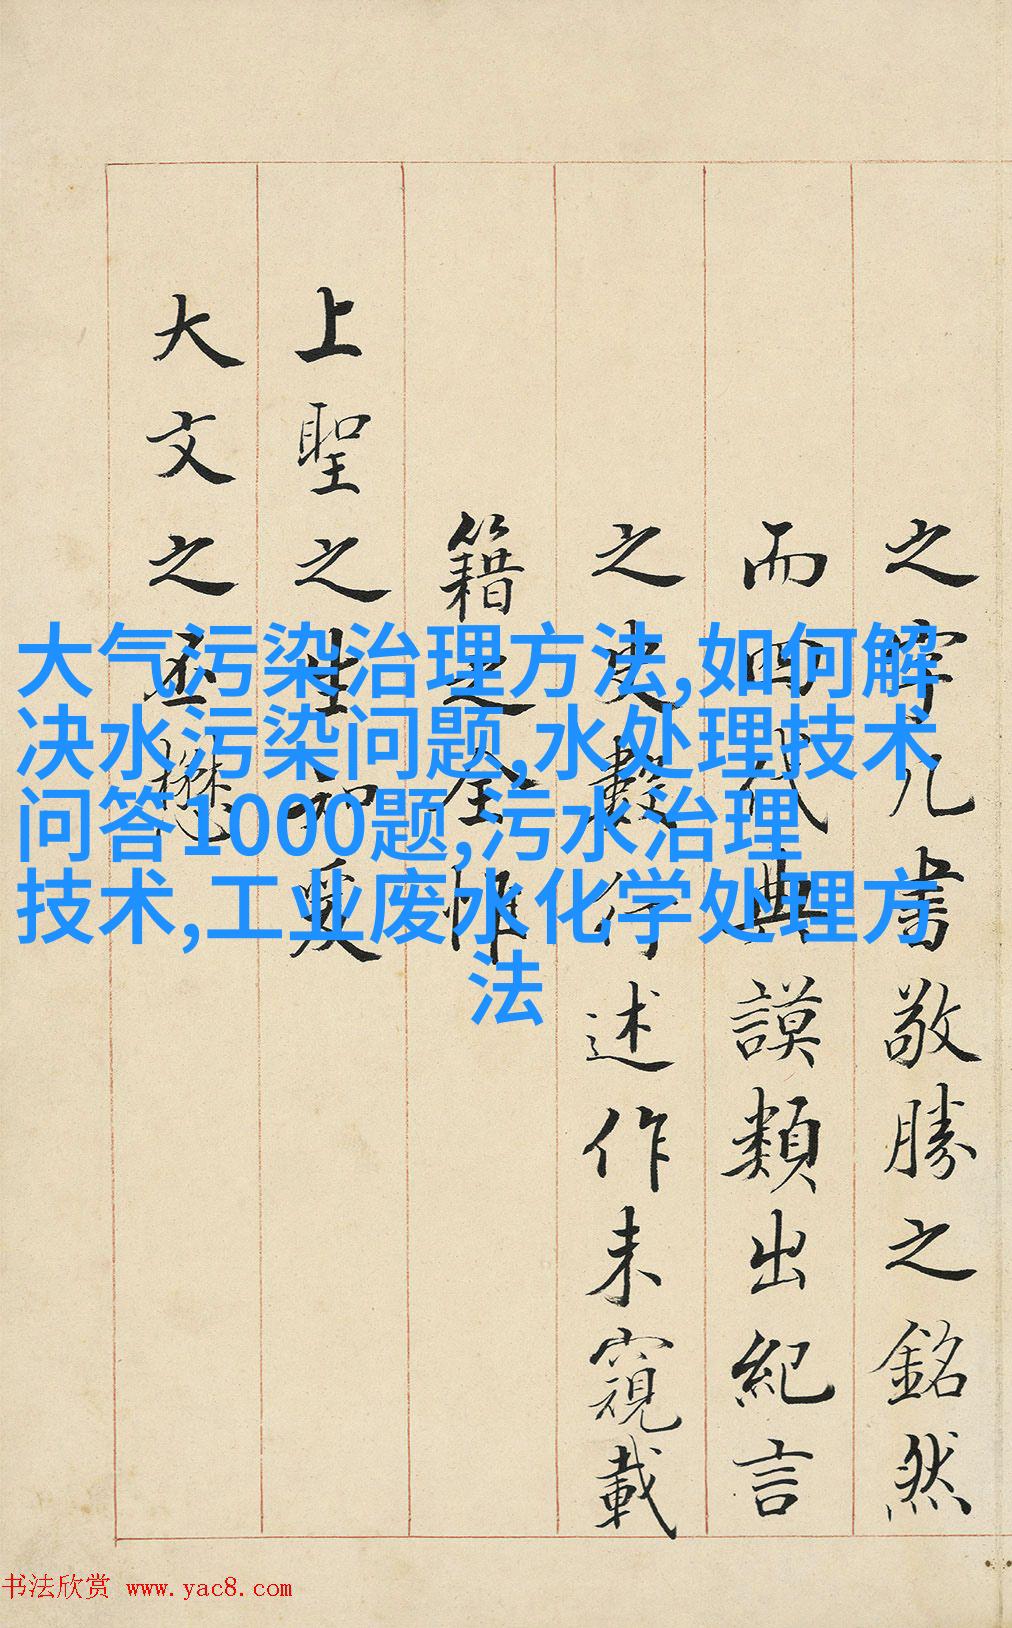 之几書敬勝之銘然
而四代典謨類出紀言
之史數行述作未窺載
籍之全惟
上聖之生知爰
大文之丕懋
大气污染治理方法,如何解
决水污染问题,水处理技术
问答1000题,污水治理
技术,工业废水化学处理方
法
书法欣赏 www.yac8.com